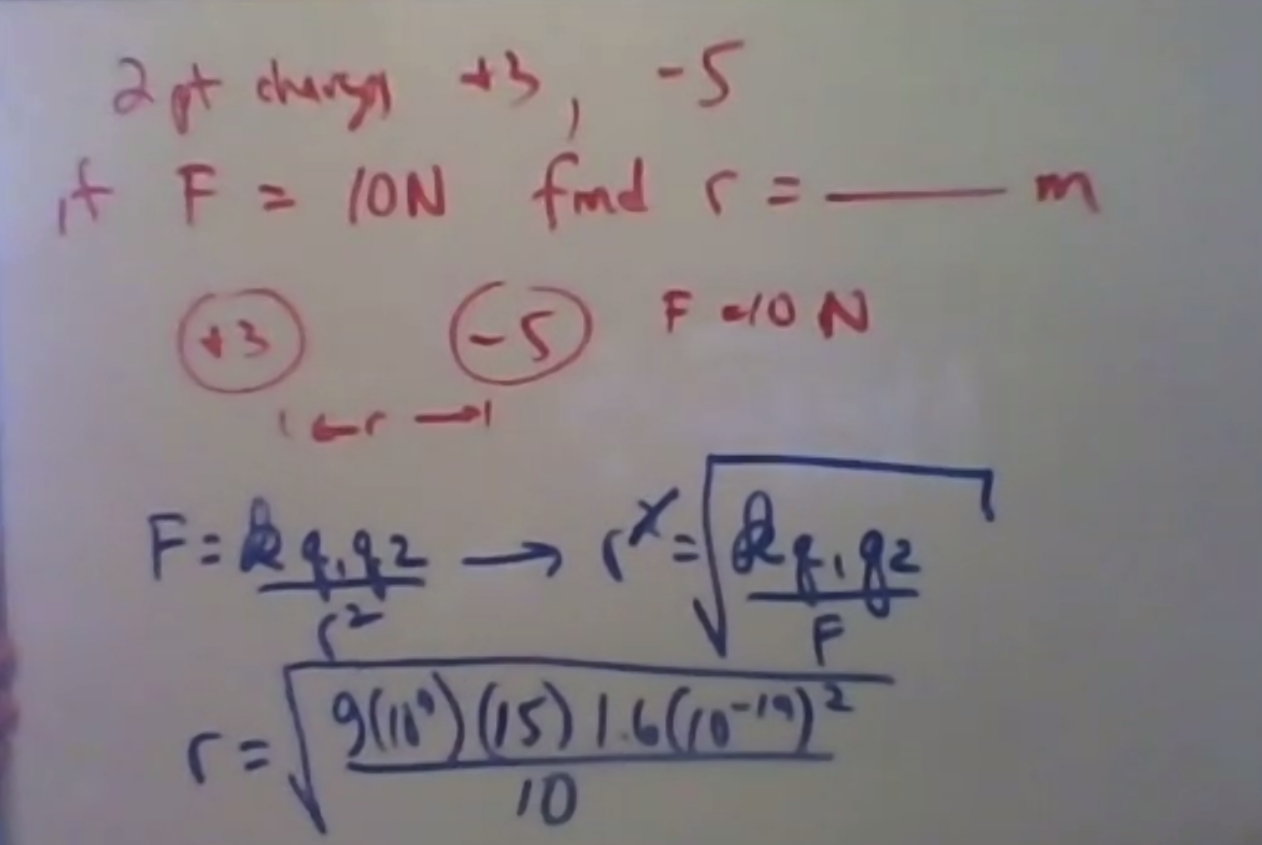 2 pt charges +3, -5
if F = 10N find r = ——— m
+3 -5 F = 10 N
r
F = k q1 q2 / r² → r² = √(k q1 q2 / F)
r = √(9(10⁹)(15) 1.6(10⁻¹⁹)² / 10)